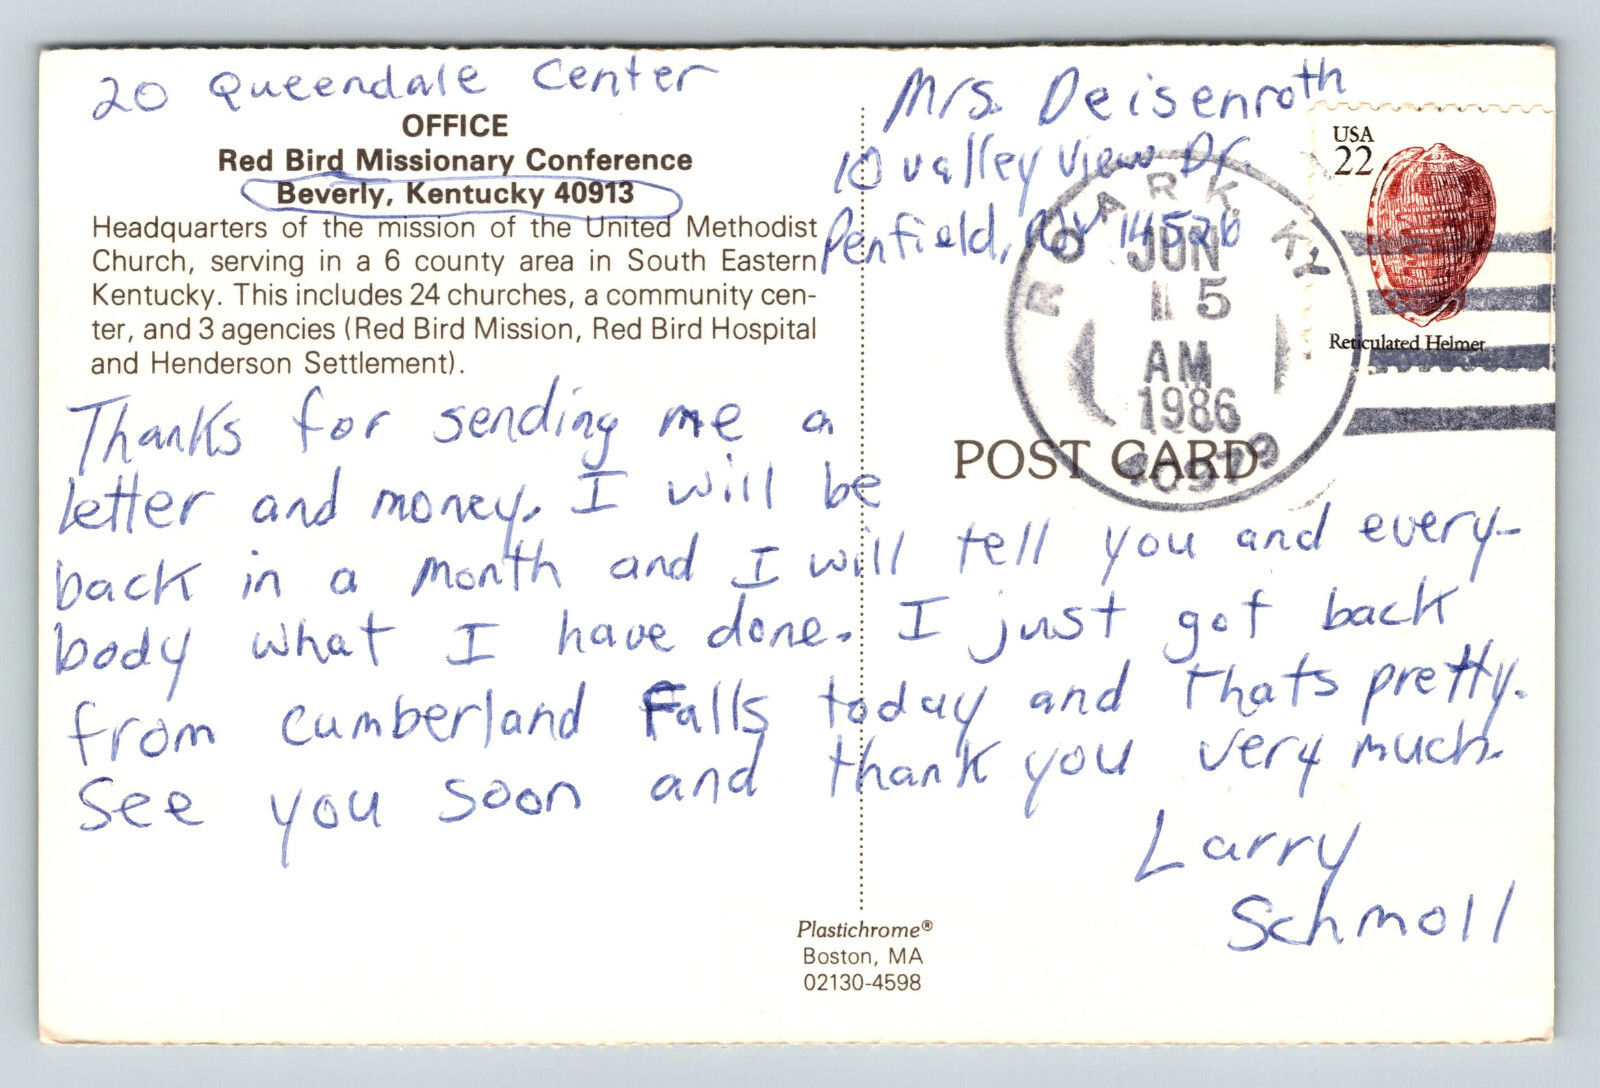 20 Queendale Center
OFFICE
Red Bird Missionary Conference
Beverly, Kentucky 40913
Headquarters of the mission of the United Methodist
Church, serving in a 6 county area in South Eastern
Kentucky. This includes 24 churches, a community cen-
ter, and 3 agencies (Red Bird Mission, Red Bird Hospital
and Henderson Settlement).
Mrs. Deisenroth
10 valley view Dr.
Penfield, NY 14526
USA
22
Reticulated Helmet
ROARK KY
JUN
15
AM
1986
40979
POST CARD
Thanks for sending me a
letter and money. I will be
back in a month and I will tell you and every-
body what I have done. I just got back
from Cumberland Falls today and thats pretty.
See you soon and thank you very much.
Larry
Schmoll
Plastichrome®
Boston, MA
02130-4598